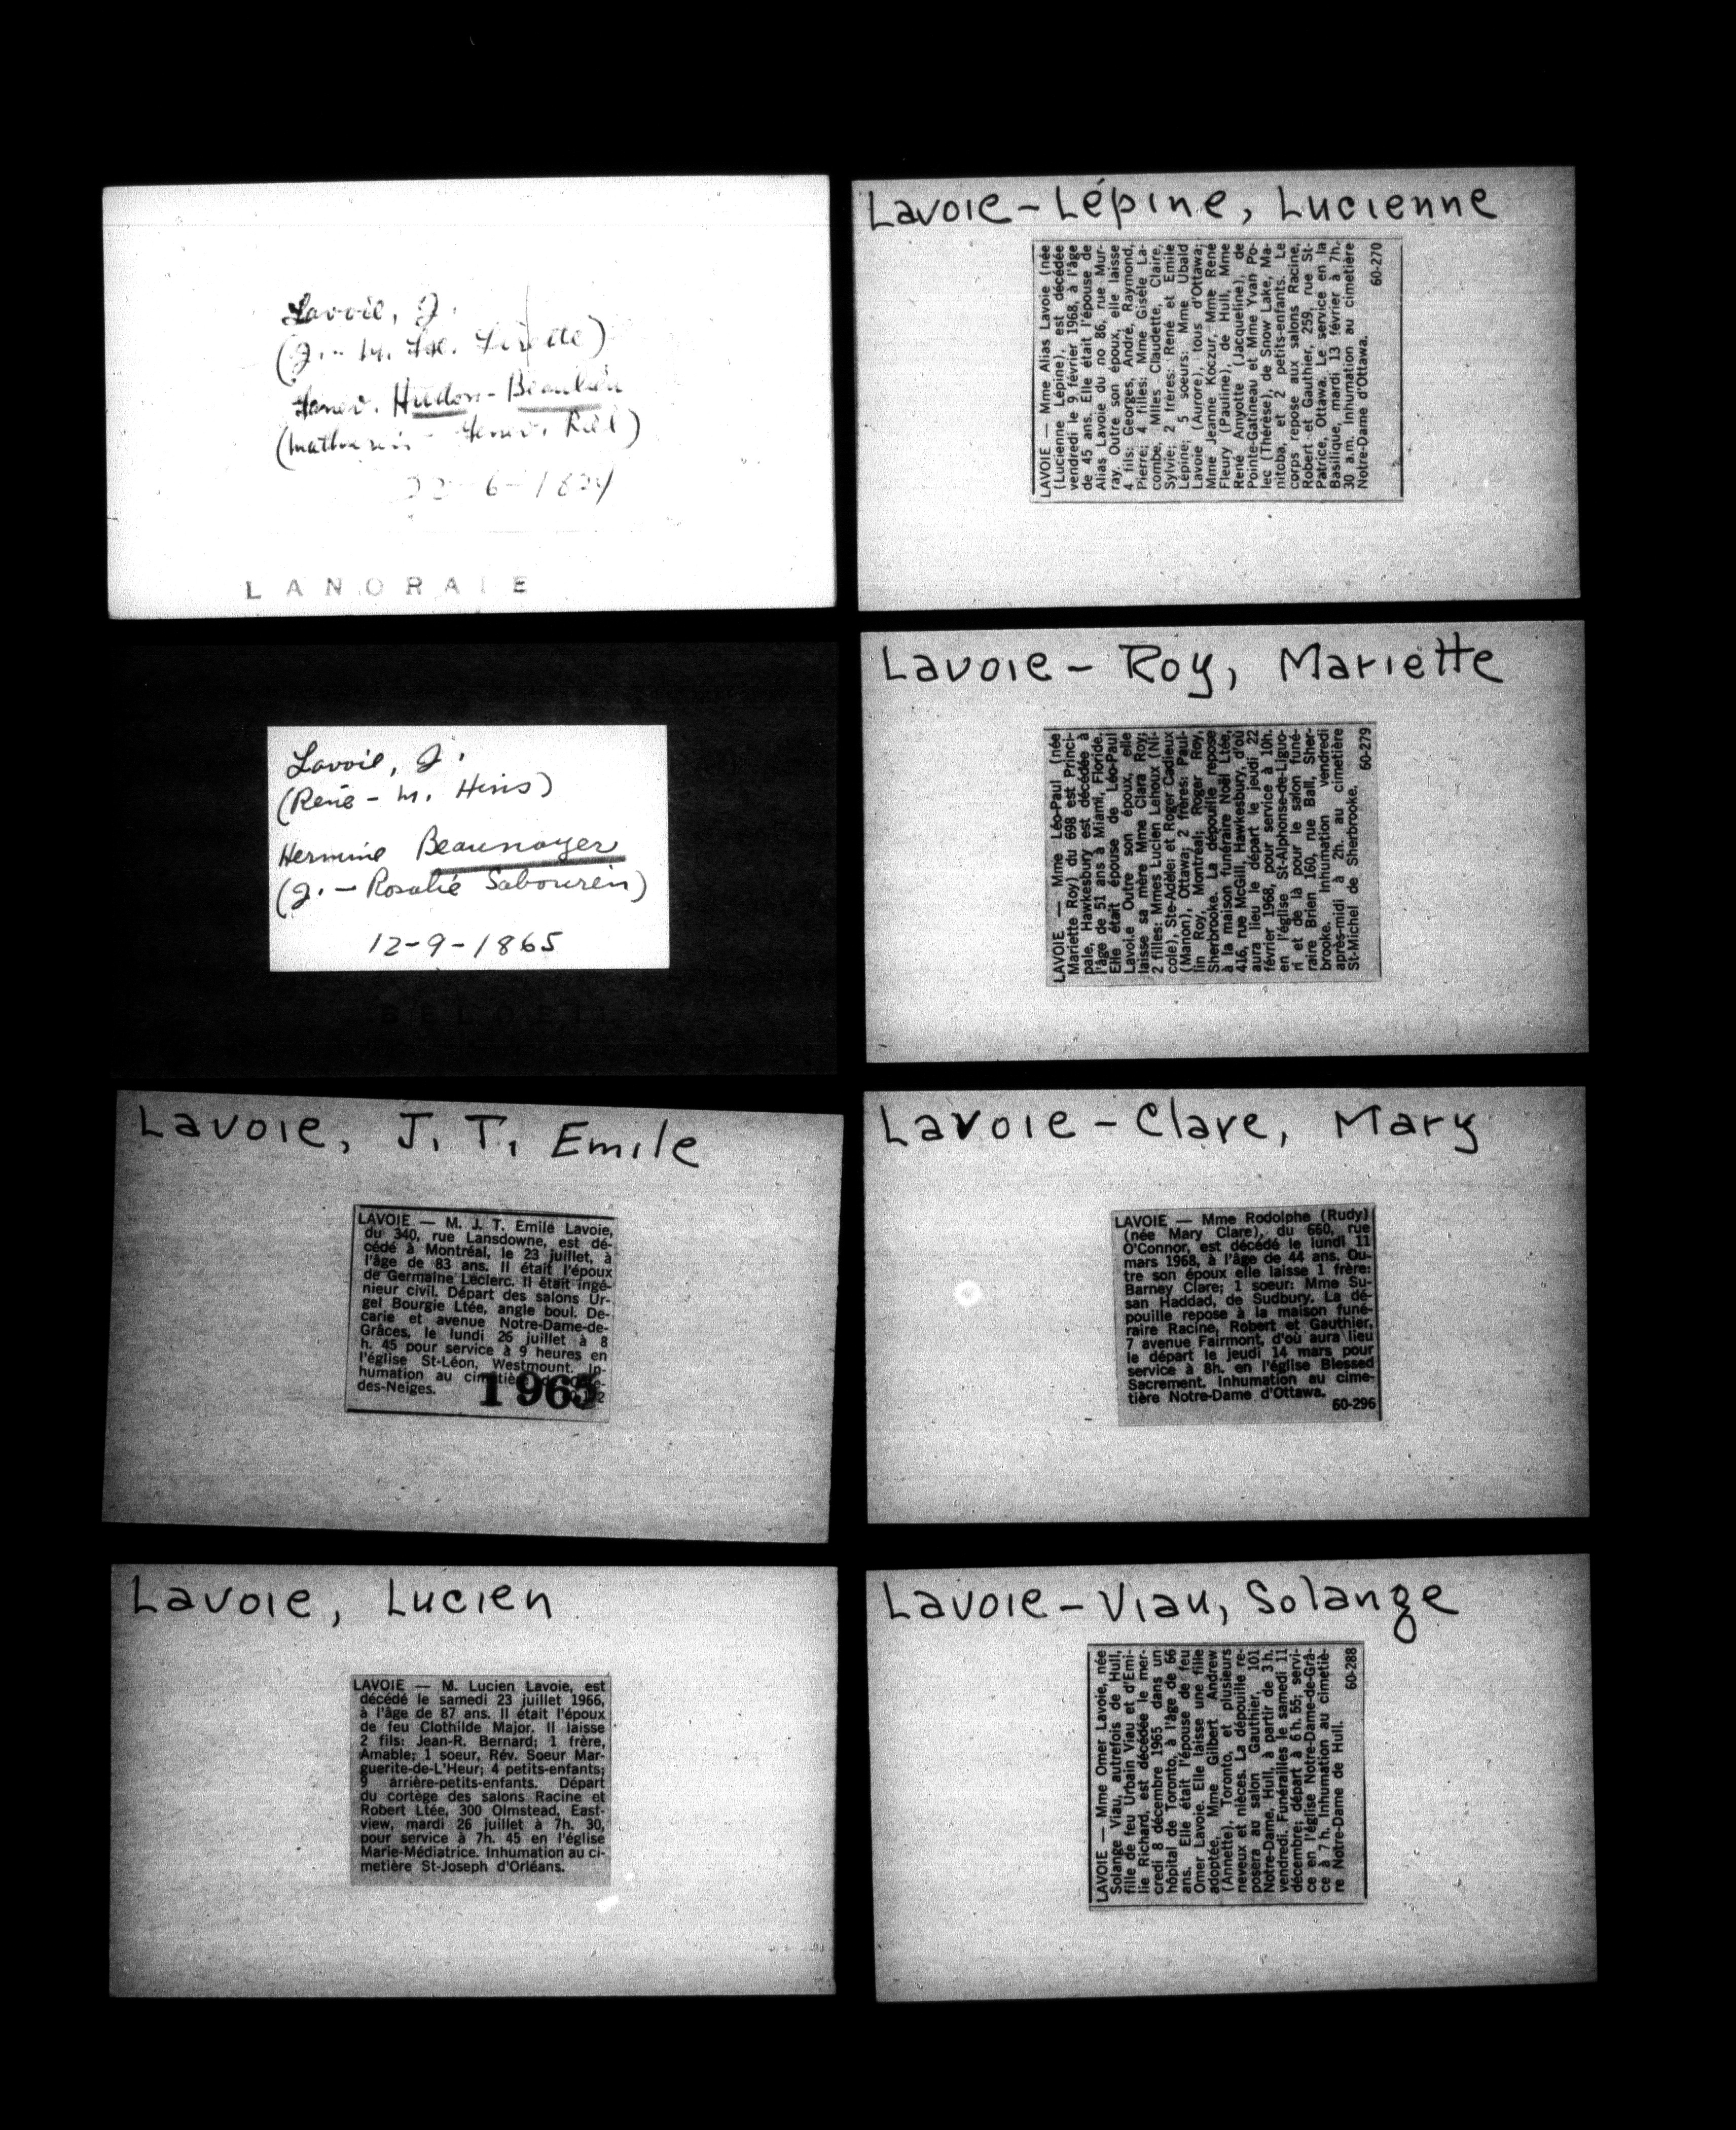 Lavoie, J.
(J. - M.
Hudon-Beaulieu
22-6-1824
LANORAIE
Lavoie, J.
(René - M. Hins)
Hermine Beaunoyer
(J. - Rosalie Sabourin)
12-9-1865
BELOEIL
Lavoie, J. T. Emile
LAVOIE — M. J. T. Emile Lavoie,
du 340, rue Lansdowne, est dé-
cédé à Montréal, le 23 juillet, à
l'âge de 83 ans. Il était l'époux
de Germaine Leclerc. Il était ingé-
nieur civil. Départ des salons Ur-
gel Bourgie Ltée, angle boul. De-
carie et avenue Notre-Dame-de-
Grâces, le lundi 26 juillet à 8
h. 45 pour service à 9 heures en
l'église St-Léon, Westmount. In-
humation au
des-Neiges.
1965
Lavoie, Lucien
LAVOIE — M. Lucien Lavoie, est
décédé le samedi 23 juillet 1966,
à l'âge de 87 ans. Il était l'époux
de feu Clothilde Major. Il laisse
2 fils: Jean-R. Bernard; 1 frère,
Amable; 1 soeur, Rév. Soeur Mar-
guerite-de-L'Heur; 4 petits-enfants;
9 arrière-petits-enfants. Départ
du cortège des salons Racine et
Robert Ltée, 300 Olmstead, East-
view, mardi 26 juillet à 7h. 30,
pour service à 7h. 45 en l'église
Marie-Médiatrice. Inhumation au ci-
metière St-Joseph d'Orléans.
Lavoie-Lépine, Lucienne
LAVOIE — Mme Alias Lavoie (née
(Lucienne Lépine), est décédée
vendredi le 9 février 1968, à l'âge
de 45 ans. Elle était l'épouse de
Alias Lavoie du no 86, rue Mur-
ray. Outre son époux, elle laisse
4 fils: Georges, André, Raymond,
Pierre; 4 filles: Mme Gisèle La-
combe, Mlles Claudette, Claire,
Sylvie; 2 frères: René et Emile
Lépine; 5 soeurs: Mme Ubald
Lavoie (Aurore), tous d'Ottawa;
Mme Jeanne Koczur, Mme René
Fleury (Pauline), de Hull, Mme
René Amyotte (Jacqueline), de
Pointe-Gatineau et Mme Yvan Po-
lec (Thérèse), de Snow Lake, Ma-
nitoba, et 2 petits-enfants. Le
corps repose aux salons Racine,
Robert et Gauthier, 259, rue St-
Patrice, Ottawa. Le service en la
Basilique, mardi 13 février à 7h.
30 a.m. Inhumation au cimetière
Notre-Dame d'Ottawa.
60-270
Lavoie-Roy, Mariette
LAVOIE — Mme Léo-Paul (née
Mariette Roy) du 698 est Princi-
pale, Hawkesbury est décédée à
l'âge de 51 ans à Miami, Floride.
Elle était épouse de Léo-Paul
Lavoie. Outre son époux, elle
laisse sa mère Mme Clara Roy;
2 filles: Mmes Lucien Lehoux (Ni-
cole), Ste-Adèle; et Roger Cadieux
(Manon), Ottawa; 2 frères: Paul-
lin Roy, Montréal; Roger Roy,
Sherbrooke. La dépouille repose
à la maison funéraire Noël Ltée,
416, rue McGill, Hawkesbury, d'où
aura lieu le départ le jeudi 22
février 1968, pour service à 10h.
en l'église St-Alphonse-de-Liguo-
ri et de là pour le salon funé-
raire Brien 160, rue Ball, Sher-
brooke. Inhumation vendredi
après-midi à 2h. au cimetière
St-Michel de Sherbrooke.
60-279
Lavoie-Clare, Mary
LAVOIE — Mme Rodolphe (Rudy)
(née Mary Clare), du 660, rue
O'Connor, est décédé le lundi 11
mars 1968, à l'âge de 44 ans. Ou-
tre son époux elle laisse 1 frère:
Barney Clare; 1 soeur: Mme Su-
san Haddad, de Sudbury. La dé-
pouille repose à la maison funé-
raire Racine, Robert et Gauthier,
7 avenue Fairmont, d'où aura lieu
le départ le jeudi 14 mars pour
service à 8h. en l'église Blessed
Sacrement. Inhumation au cime-
tière Notre-Dame d'Ottawa.
60-296
Lavoie-Viau, Solange
LAVOIE — Mme Omer Lavoie, née
Solange Viau, autrefois de Hull,
fille de feu Urbain Viau et d'Emi-
lie Richard, est décédée le mer-
credi 8 décembre 1965 dans un
hôpital de Toronto, à l'âge de 66
ans. Elle était l'épouse de feu
Omer Lavoie. Elle laisse une fille
adoptée, Mme Gilbert Andrew
(Annette), Toronto, et plusieurs
neveux et nièces. La dépouille re-
posera au salon Gauthier, 101
Notre-Dame, Hull, à partir de 3 h.
vendredi. Funérailles le samedi 11
décembre; départ à 6 h. 55; servi-
ce en l'église Notre-Dame-de-Grâ-
ce à 7 h. Inhumation au cimetiè-
re Notre-Dame de Hull.
60-288